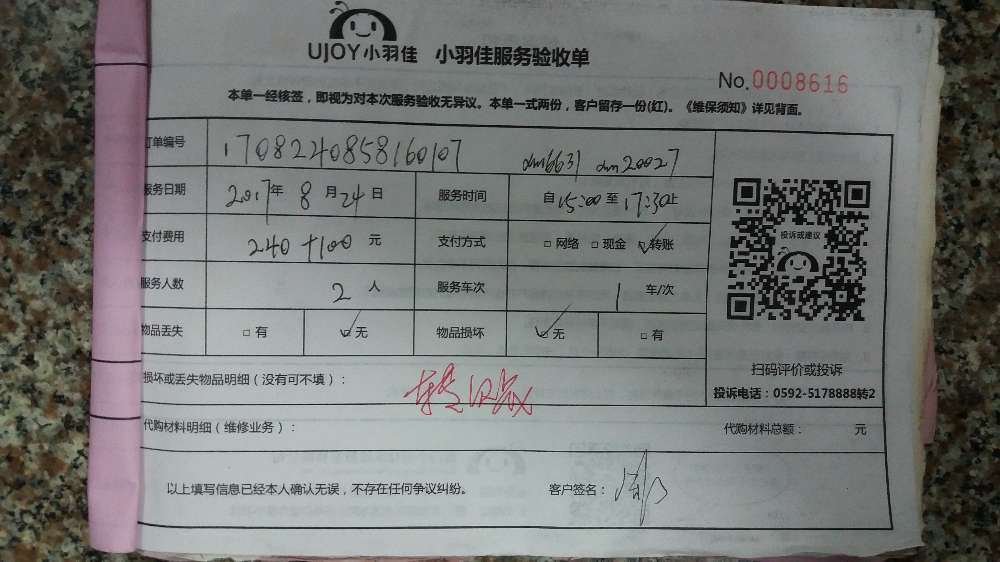 UJOY小羽佳 小羽佳服务验收单
No.0008616
本单一经核签，即视为对本次服务验收无异议。本单一式两份，客户留存一份(红)。《维保须知》详见背面。
订单编号 1708240858160107 dm6631 dm20027
服务日期 2017年 8月24日 服务时间 自15:00至17:30止
支付费用 240+100 元 支付方式 □网络 □现金 ☑转账
服务人数 2 人 服务车次 1 车/次
物品丢失 □有 ☑无 物品损坏 ☑无 □有
投诉或建议
扫码评价或投诉
投诉电话：0592-5178888转2
损坏或丢失物品明细（没有可不填）：
代购材料明细（维修业务）： 代购材料总额： 元
以上填写信息已经本人确认无误，不存在任何争议纠纷。 客户签名：